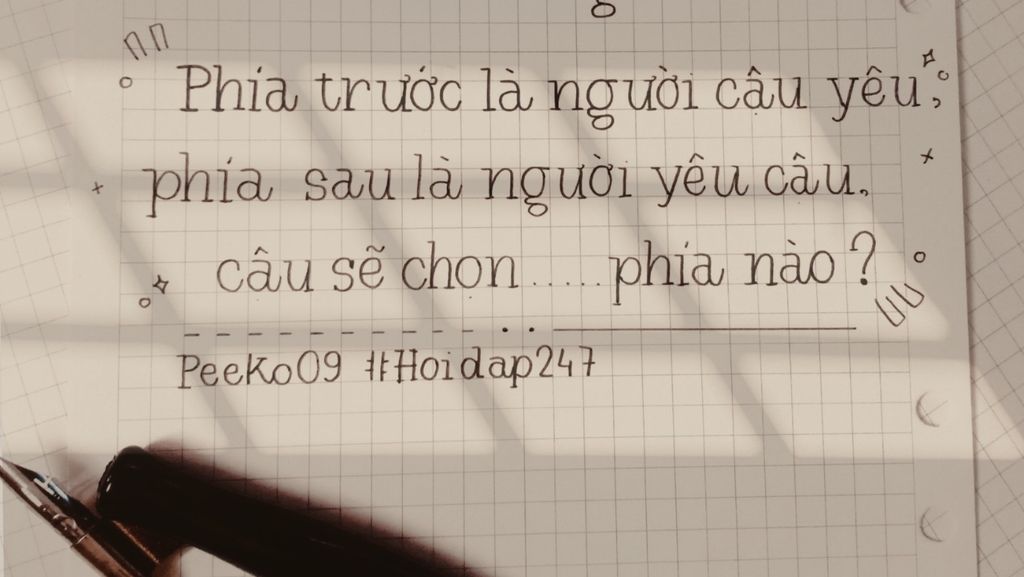 Phía trước là người cậu yêu,
phía sau là người yêu cậu.
cậu sẽ chọn ..... phía nào?
PeeKo09 #Hoidap247